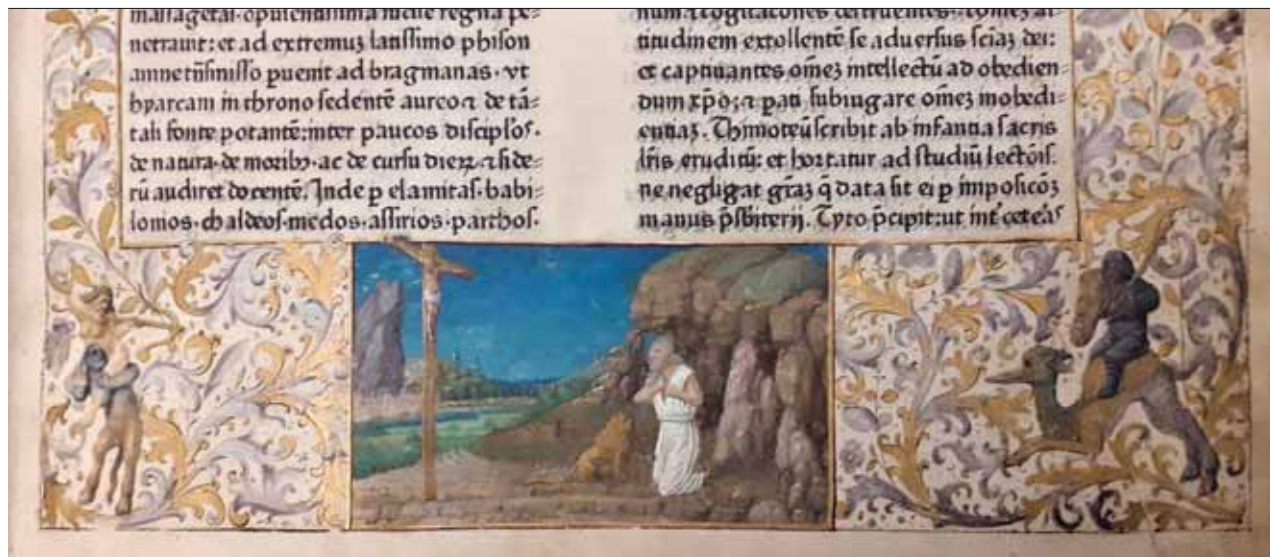 massagetas·opulentissima indie regna pe⸗
netrauit: et ad extremuz latissimo phison
amne trãsmisso puenit ad bragmanas· vt
hyarcam in throno sedentẽ aureo ⁊ de tã⸗
tali fonte potantẽ: inter paucos discipłos·
de natura· de moribꝰ· ac de cursu dierꝝ ⁊ side⸗
rũ audiret docentẽ. Inde p elamitas· babi⸗
lonios· chaldeos· medos· assirios· parthos·
num ⁊ cogitacones destruentes· ⁊ omez al⸗
titudinem extollentẽ se aduersus sciaz dei:
et captiuantes omez intellectũ ad obedien⸗
dum xp̃o: ⁊ pati subiugare omez inobedi⸗
entiaz. Thimoteũ scribit ab infantia sacris
lr̃is eruditũ: et hortatur ad studiũ lectõis.
ne negligat gr̃az q̃ data sit ei p imposicõz
manus p̃sbiterij. Tyto p̃cipit: ut int' ceteãs